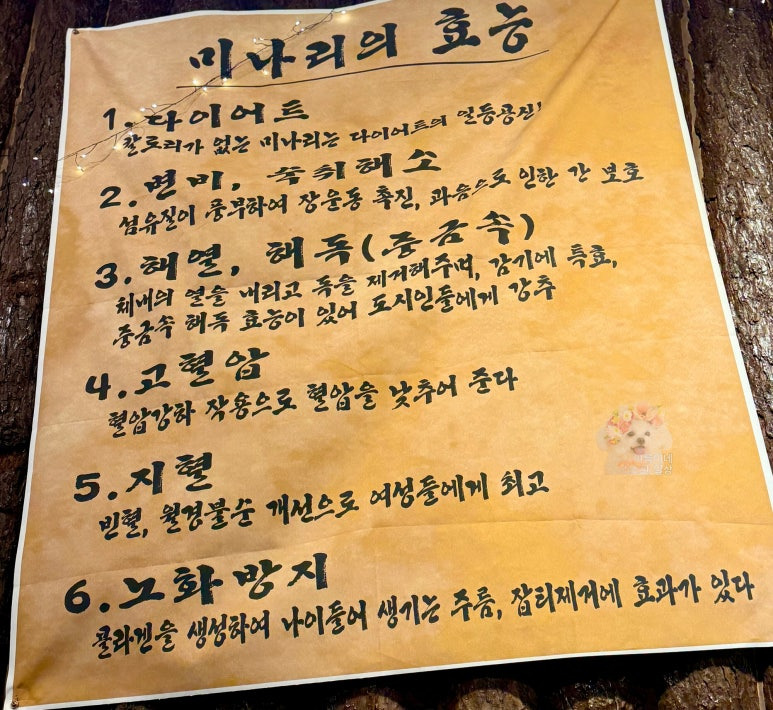 미나리의 효능
1. 다이어트
칼로리가 없는 미나리는 다이어트의 일등공신!
2. 변비, 숙취해소
섬유질이 풍부하여 장운동 촉진, 과음으로 인한 간 보호
3. 해열, 해독(중금속)
체내의 열을 내리고 독을 제거해주며, 감기에 특효,
중금속 해독 효능이 있어 도시인들에게 강추
4. 고혈압
혈압강하 작용으로 혈압을 낮추어 준다
5. 지혈
빈혈, 월경불순 개선으로 여성들에게 최고
6. 노화방지
콜라겐을 생성하여 나이들어 생기는 주름, 잡티제거에 효과가 있다